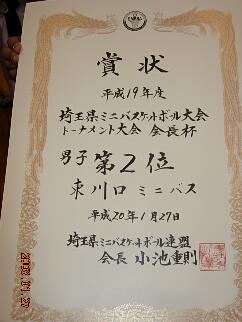 賞状
平成19年度
埼玉県ミニバスケットボール大会
トーナメント大会 会長杯
男子 第2位
東川口ミニバス
平成20年1月27日
埼玉県ミニバスケットボール連盟
会長 小池重則
2008.01.27